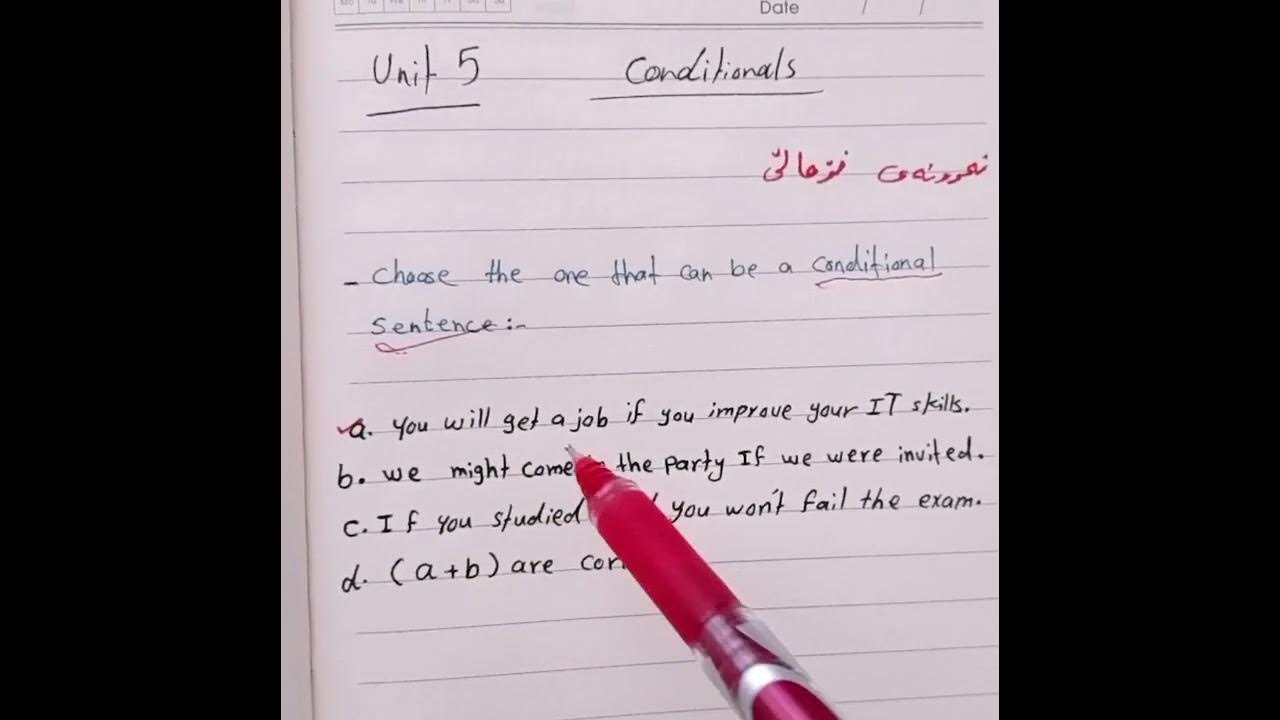 Date / /
Unit 5 Conditionals
نموونەی
- Choose the one that can be a conditional
sentence:-
a. You will get a job if you improve your IT skills.
b. we might come the party If we were invited.
c. If you studied you won't fail the exam.
d. (a+b) are